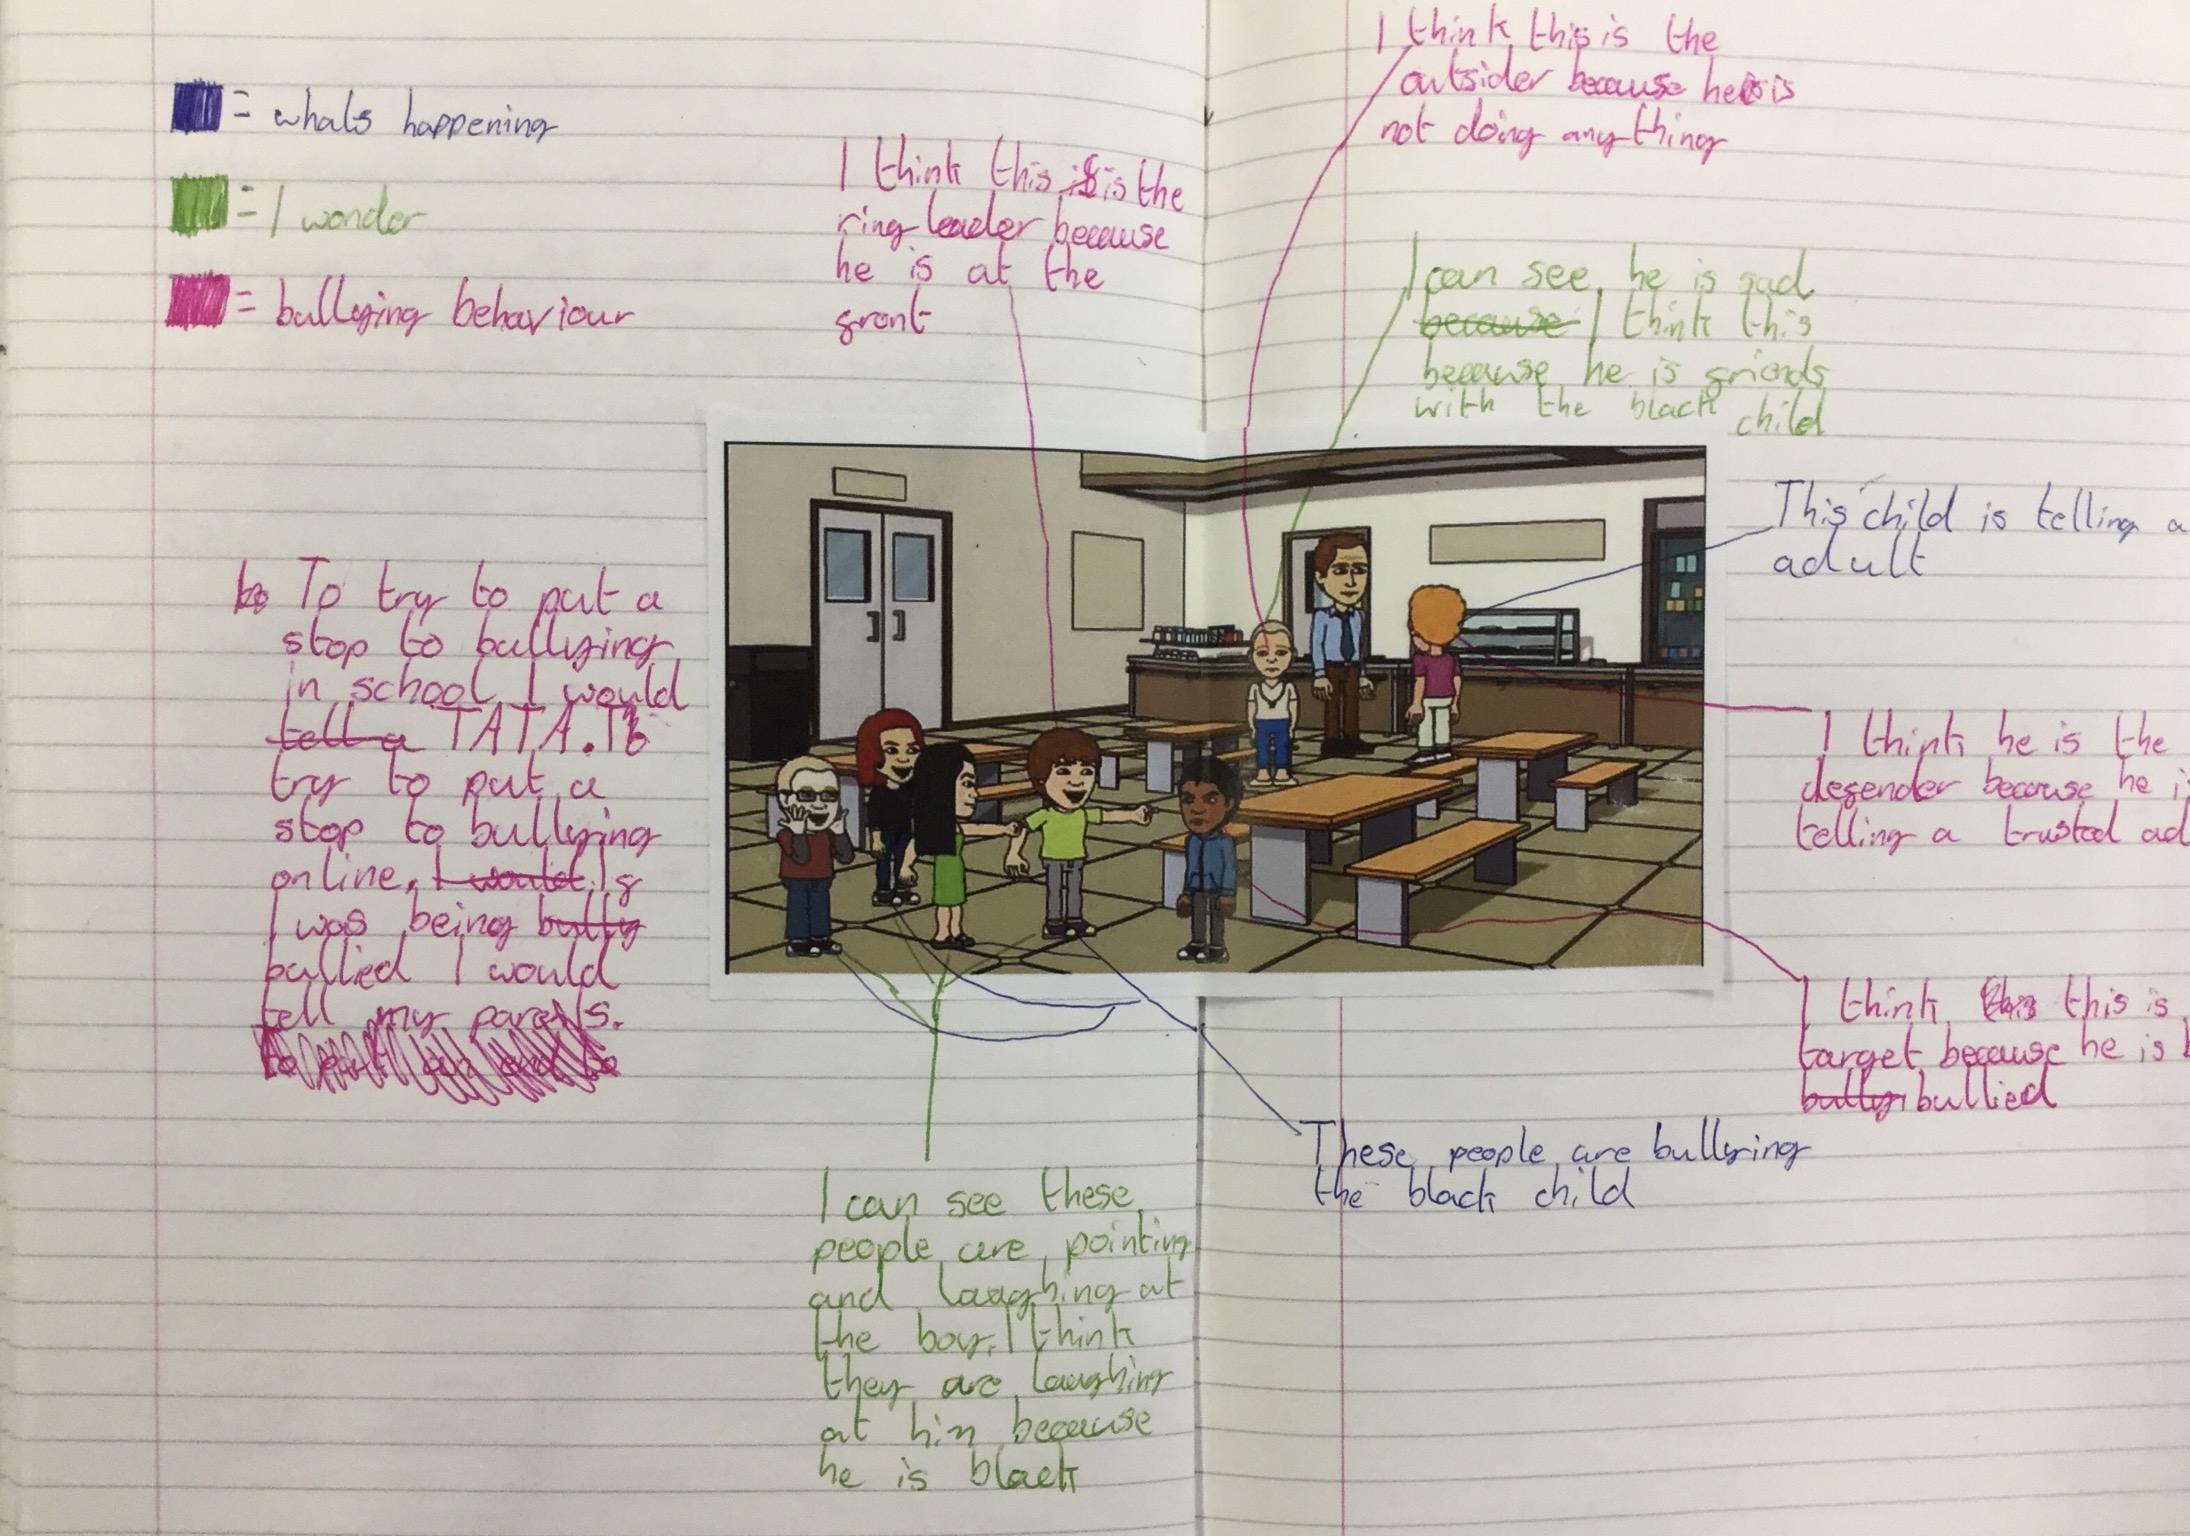 = whats happening
= I wonder
= bullying behaviour
I think this is is the
ring leader because
he is at the
front
I think this is the
outsider because he is is
not doing anything
I can see he is sad
because I think this
because he is friends
with the black child
This child is telling a
adult
I think he is the
defender because he i
telling a trusted ad
I think this this is
target because he is b
bully bullied
These people are bullying
the black child
bo To try to put a
stop to bullying
in school I would
tell a TATA. To
try to put a
stop to bullying
online, I would If
I was being bully
bullied I would
tell my parents.
I can see these
people are pointing
and laughing at
the boy, I think
they are laughing
at him because
he is black